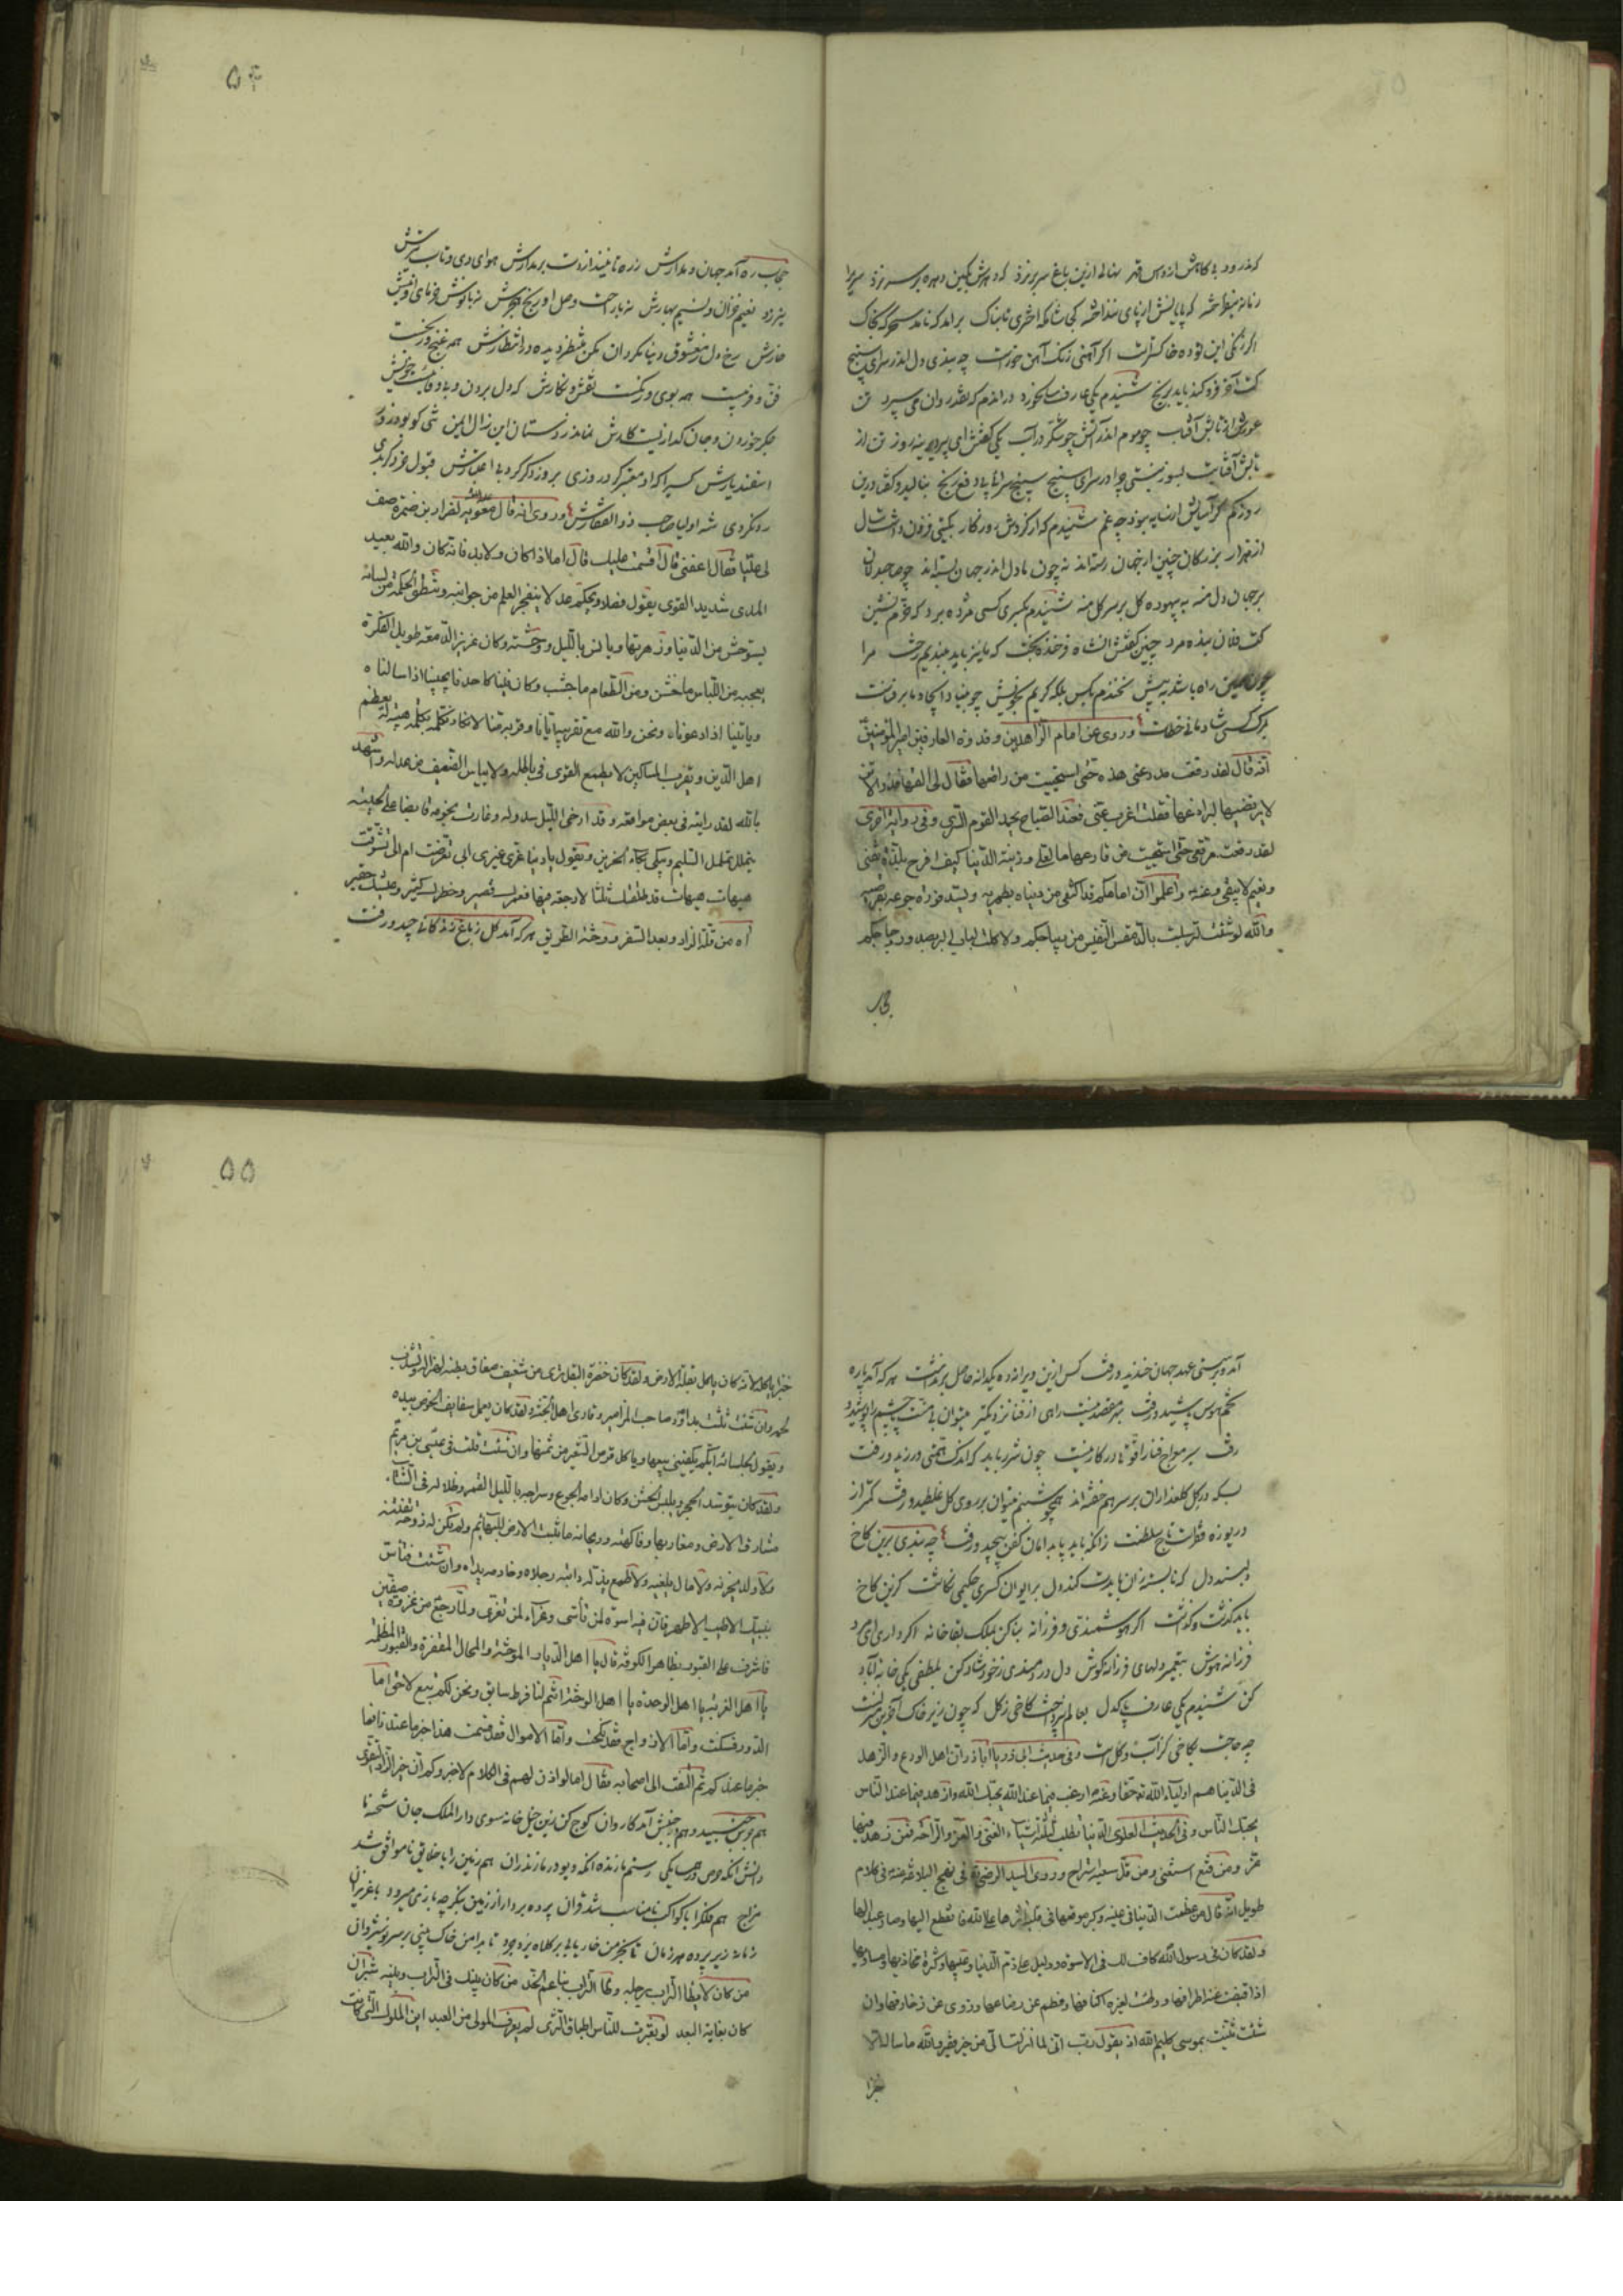 اکر زنکی این توده خاکسترات اکر آهنی زنک آهن خورست چه بندی دل اندر سرای سپنج
عورش از تابش آفتاب چو موم اندر آتش چو شکر در آب یکی کفتش ای پیر دیرینه روز تن از
تابش آفتابت بسوز نیستی چرا در سرای سپنج سپنج سرائی پی دفع رنج بنالید و کفتا درین
روزکم کر آسایش ار نباید بود چه غم شنیدم که از کردش روزکار بکیتی فزون داشت سال
از هزار بزرکان چنین از جهان رسته اند نه چون ما دل اندر جهان بسته اند چو صاحبدلان
بر جهان دل منه به بیهوده کل بر سر کل منه شنیدم بکسری کسی مژده برد که خرم نشین
کت فلان بنده مرد چنین کفتش انشاه فرخنده بخت که ما نیز باید ببندیم رخت مرا
بمرک کسی شادمانی خطاست وروی عن امام الزاهدین وقدوة العارفین امیر المؤمنین
انه قال لقد رقعت مدرعتی هذه حتی استحییت من راقعها فقال لی القها
لا یرتضیها لبراذعها فقلت اغرب عنی فعند الصباح یحمد القوم السری وفی روایة اخری
لقد رقعت مرقعی حتی استحییت من راقعها ما لعلی وزینة الدنیا کیف افرح بلذة تفنی
ونعیم لا یبقی وعنه واعلموا ان امامکم قد اکتفی من دنیاه بطمریه ویسد فورة جوعه بقرصیه
والله لو شئت لتسربلت بالدمقس النفیس من دیباجکم ولاکلت لباب البر بصدور دجاجکم
۵۴
حجاب ره آمد جهان و مدارش ز ره تا نیندازدت بر مدارش هوای دی و تاب
نیرزد نعیم خزان و نسیم بهارش نه با راحت وصل او رنج هجرش نه با نوش خرمای او نیش
خارش رخ دل ز معشوق دنیا بکردان مکن منتظر دیده در انتظارش همه غنج و رنجست
فن و فریبست همه بوی و رنکست نقش و نکارش که دل بردن و بی وفائیست خویش
جکر خوردن و جان کدازیست کارش نماند ز دستان این زال ایمن تنی کو بود زور
اسفندیارش کسی را که او معتبر کرد روزی بروز دکر کرد بی اعتبارش قبول خرد کر بدی
رد نکردی شه اولیا صاحب ذوالفقارش وروی انه قال معویه لضرار بن ضمرة صف
لی علیا فقال اعفنی قال اقسمت علیک قال اما اذا کان ولابد فانه کان والله بعید
المدی شدید القوی یقول فصلا ویحکم عدلا ینفجر العلم من جوانبه وتنطق الحکمة من لسانه
یستوحش من الدنیا وزهرتها ویانس باللیل ووحشته وکان غزیر الدمعه طویل الفکرة
یعجبه من اللباس ما خشن ومن الطعام ما جشب وکان فینا کاحدنا یجیبنا اذا سالناه
ویاتینا اذا دعوناه ونحن والله مع تقریبه ایانا وقربه منا لا نکاد نکلمه هیبة له یعظم
اهل الدین ویقرب المساکین لا یطمع القوی فی باطله ولا ییاس الضعیف من عدله واشهد
بالله لقد رایته فی بعض مواقفه وقد ارخی اللیل سدوله وغارت نجومه قابضا علی لحیته
یتململ تململ السلیم ویبکی بکاء الحزین ویقول یا دنیا غری غیری ابی تعرضت ام الی تشوقت
هیهات هیهات قد طلقتک ثلثا لا رجعة فیها فعمرک قصیر وخطرک کثیر وعیشک حقیر
آه من قلة الزاد وبعد السفر ووحشة الطریق هر که آمد کل ز باغ زندکانی چید و رفت
آمد و بر سستی عهد جهان خندید و رفت کس ازین ویرانه ده یکدانه حاصل برنداشت هر که آمد پاره
بسکه در کل کلعذاران بر سر هم خفته اند همچو شبنم میتوان بر روی کل غلطید و رفت کمتر از
دریوزه فقر است تاج سلطنت زانکه باید پا بدامان کفن پیچید و رفت چه بندی برین کاخ
باید کذشت و کذاشت اکر هوشمندی و فرزانه بنا کن بملک بقا خانه اکر داری ای مرد
فرزانه هوش بتعمیر دلهای فرزانه کوش دل دردمندی ز خود شاد کن بلطفی یکی خانه آباد
کن شنیدم یکی عارف پاکدل بعالم نپرداخت کاخی ز کل که چون زیر خاک آخرین منزلست
چه حاجت بکاخی کز آب و کلست وفی حدیث ابی ذر یا اباذر ان اهل الورع والزهد
فی الدنیا هم اولیاء الله تعالی حقا وعنه ارغب فیما عند الله یحبک الله وازهد فیما عند الناس
یحبک الناس وفی الحدیث العلوی الدنیا تطلب لثلثة اشیاء الغنی والعز والراحة فمن زهد فیها
عز ومن قنع استغنی ومن قل سعیه استراح وروی السید الرضی فی نهج البلاغة عنه فی کلام
طویل انه قال من عظمت الدنیا فی عینه وکبر موقعها فی قلبه اثرها علی الله فانقطع الیها وصار عبدا لها
ولقد کان فی رسول الله کاف لک فی الاسوة ودلیل علی ذم الدنیا وعیبها وکثرة مخازیها ومساویها
اذا قبضت عنه اطرافها ووطئت لغیره اکنافها وفطم عن رضاعها وزوی عن زخارفها وان
شئت ثنیت بموسی کلیم الله اذ یقول رب انی لما انزلت الی من خیر فقیر والله ما ساله الا
خبزا
۵۵
خبزا یاکله لانه کان یاکل بقلة الارض ولقد کان خضرة البقل تری من شفیف صفاق بطنه لهزاله وتشذب
لحمه وان شئت ثلثت بداود صاحب المزامیر وقاری اهل الجنة ولقد کان یعمل سفایف الخوص بیده
ویقول لجلسائه ایکم یکفینی بیعها ویاکل قرص الشعیر من ثمنها وان شئت قلت فی عیسی بن مریم
ولقد کان یتوسد الحجر ویلبس الخشن وکان ادامه الجوع وسراجه باللیل القمر وظلاله فی الشتاء
مشارق الارض ومغاربها وفاکهته وریحانه ما تنبت الارض للبهائم ولم تکن له زوجة تفتنه
ولا ولد یحزنه ولا مال یلفته ولا طمع یذله دابته رجلاه وخادمه یداه وان شئت فتاس
بنبیک الاطیب الاطهر فان فیه اسوة لمن تأسی وعزاء لمن تعزی ولما رجع من غزوة صفین
فاشرف علی القبور بظاهر الکوفه قال یا اهل الدیار الموحشة والمحال المقفرة والقبور المظلمة
یا اهل الغربه یا اهل الوحده یا اهل الوحشة انتم لنا فرط سابق ونحن لکم تبع لاحق اما
الدور فسکنت واما الازواج فقد نکحت واما الاموال فقد قسمت هذا خبر ما عندنا فما
خبر ما عندکم ثم التفت الی اصحابه فقال اما لو اذن لهم فی الکلام لاخبروکم ان خیر الزاد التقوی
مزاج هم فلک را با کواکب نامناسب شد قران پرده بردار از زمین بنکر چه بازی میرود با عزیزان
زمانه زیر پرده هر زمان تا بنکر من خار یابی بر کلاه یزدجرد تا بدامن خاک بینی بر سر نوشیروان
من کان لا یطأ التراب برجله وطأ التراب بناعم الخد من کان بینک فی التراب وبینه شبران
کان بغایة البعد لو بعثرت للناس اطباق الثری لم یعرف المولی من العبد این الملوک التی کانت